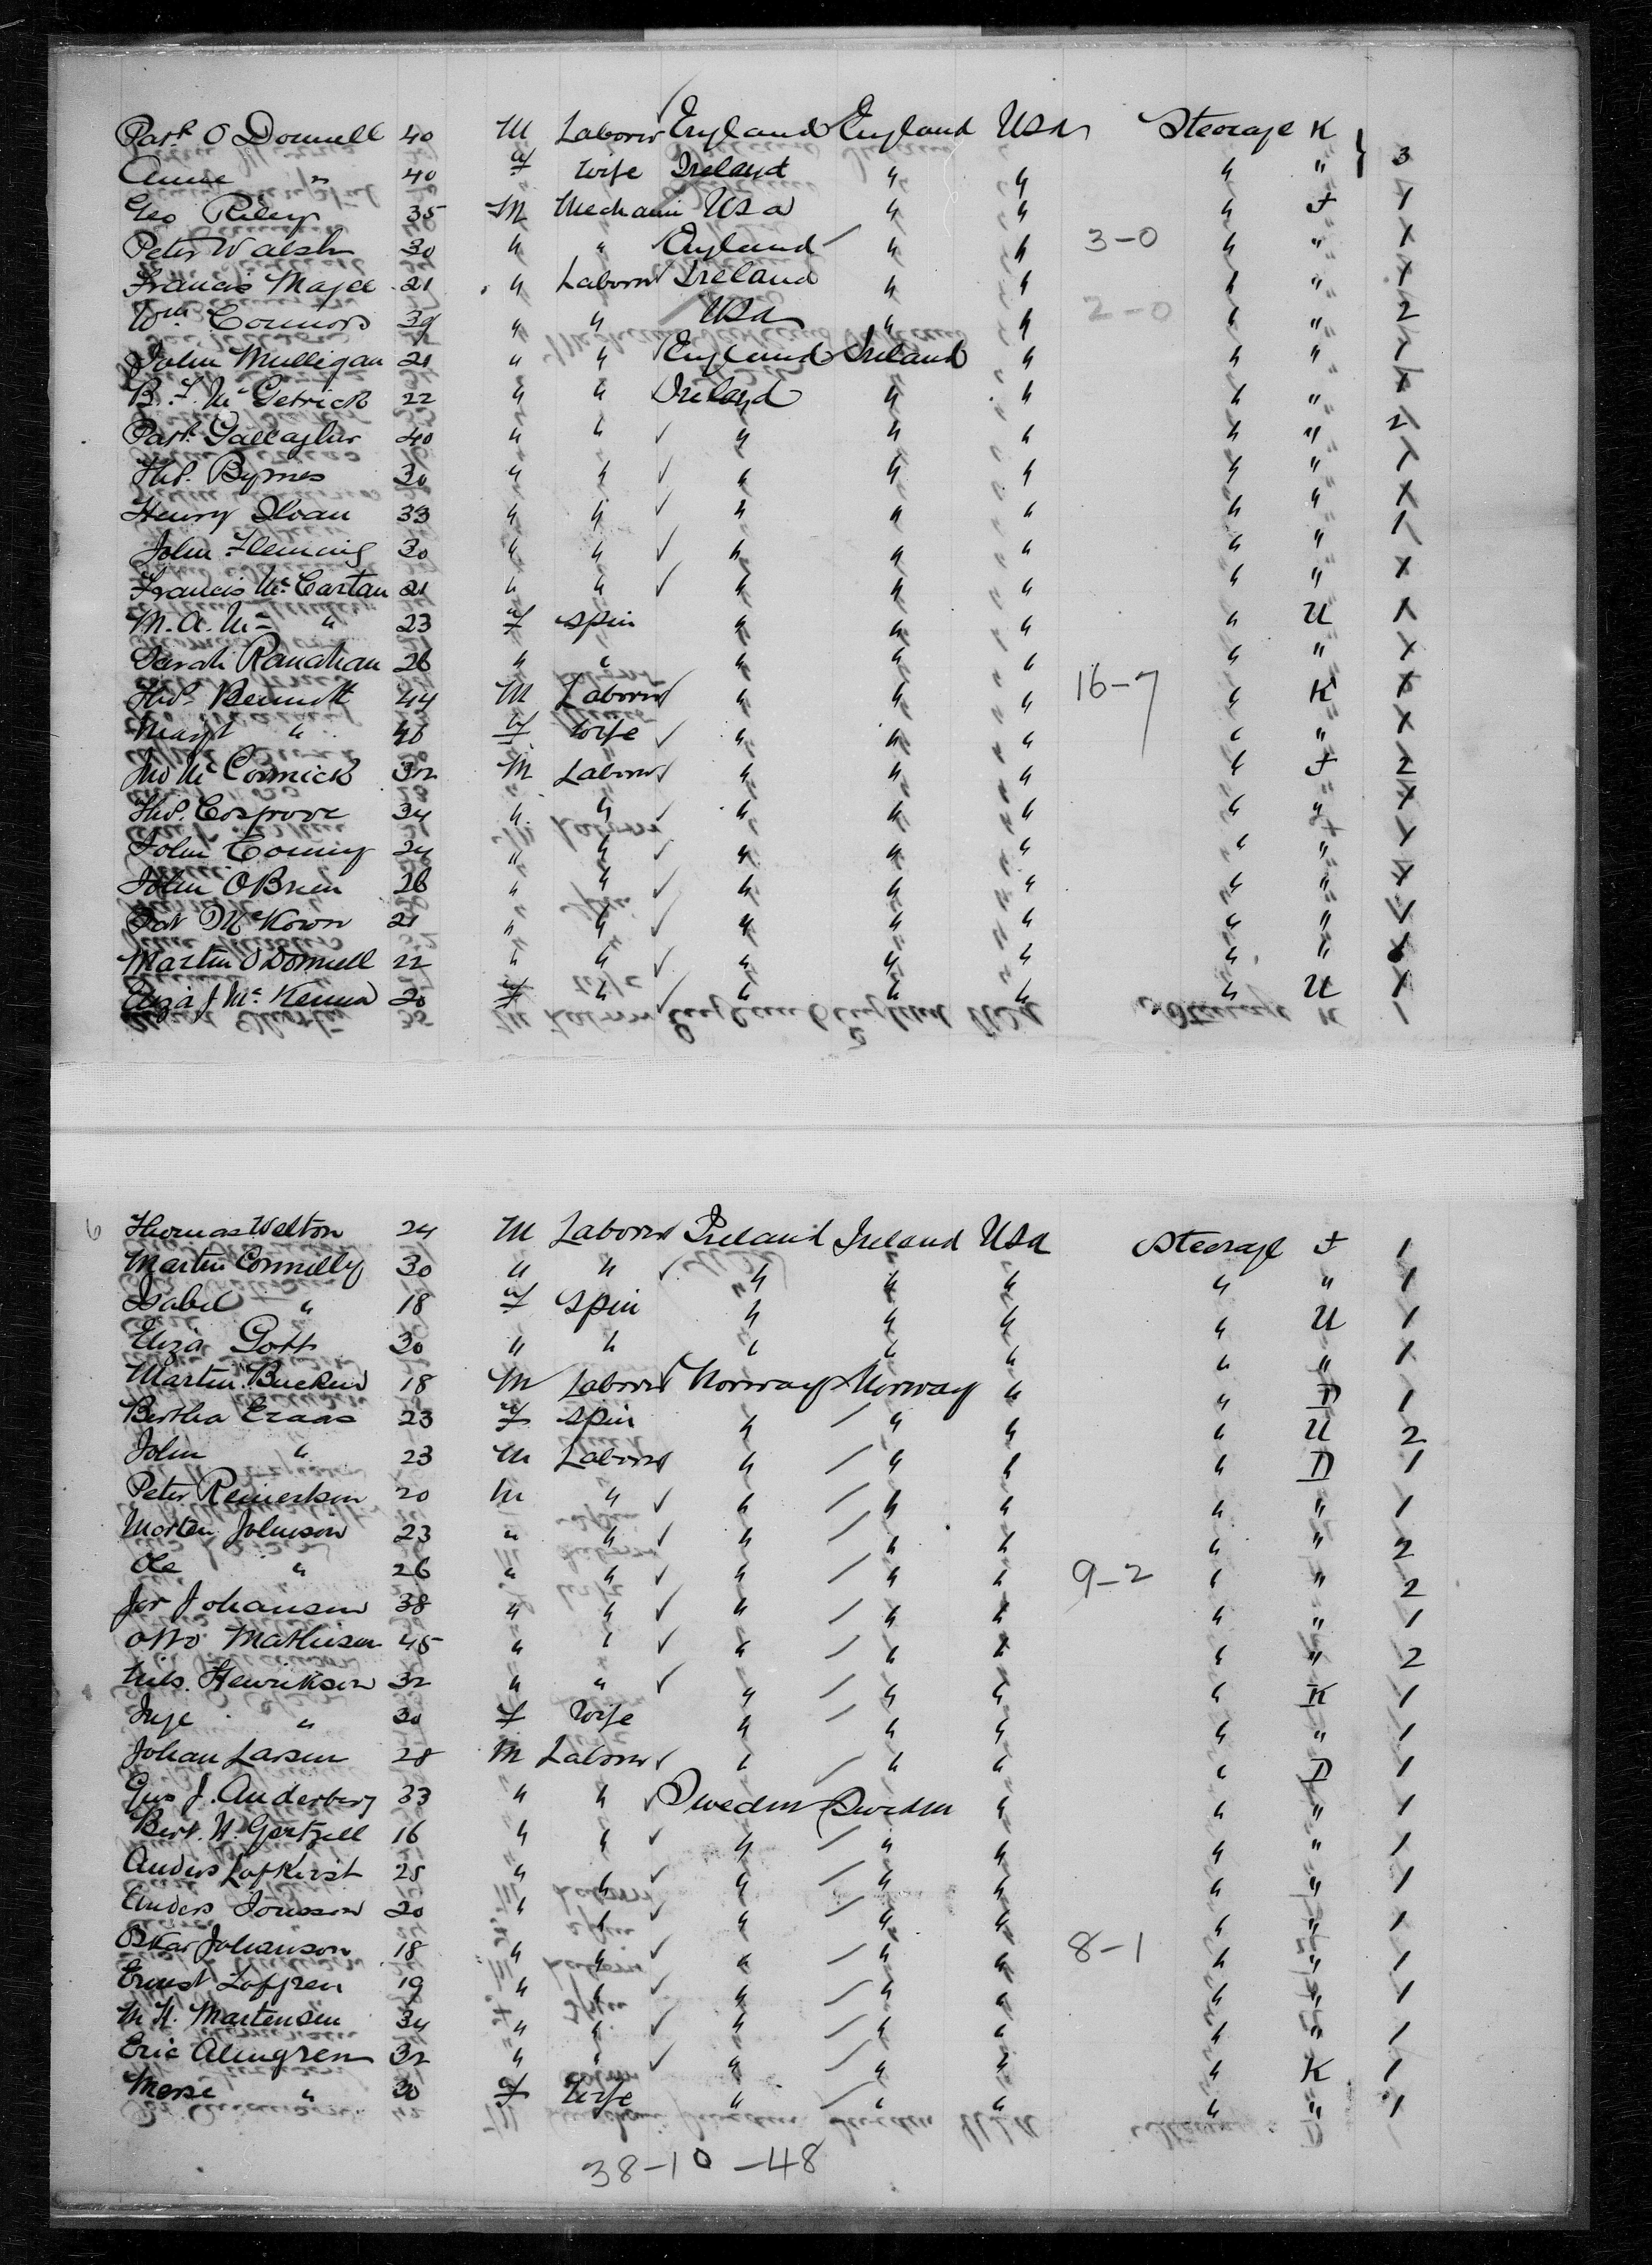 Patk O Donnell 40 M Laborer England England USA Steerage K 3
Anne " 40 f Wife Ireland " " " "
Geo Riley 35 M Mechanic USA " " " J 1
Peter Walsh 30 " " England " " 3-0 " " 1
Francis Magee 21 " Laborer Ireland " " " " 1
Wm Connors 39 " " USA " " 2-0 " " 2
John Mulligan 21 " " England Ireland " " " 1
B. F. McGetrick 22 " " Ireland " " " " 1
Patk Gallagher 40 " " " " " " " 2
Thos. Byrnes 30 " " " " " " " 1
Henry Sloan 33 " " " " " " " 1
John Fleming 30 " " " " " " " 1
Francis McCartan 21 " " " " " " " 1
M. A. Mc " 23 f Spin " " " " U 1
Sarah Ranahan 26 " " " " " " " 1
Thos. Bennett 44 M Laborer " " " 16-7 " K 1
Margt " 46 f Wife " " " " " 1
Jno McCormick 32 M Laborer " " " " J 2
Thos. Cosgrove 34 " " " " " " " 1
John 24 " " " " " " " 1
John OBrien 26 " " " " " " " 1
Pat McKown 21 " " " " " " " 1
Martin O Donnell 22 " " " " " " "
Eliza J McKenna 20 f " " " " " U 1
6 Thomas Welton 24 M Laborer Ireland Ireland USA Steerage J 1
Martin Connelly 30 " " " " " " " 1
Isabel " 18 f Spin " " " " U 1
Eliza Gott 30 " " " " " " " 1
Martin 18 M Laborer Norway Norway " " D 1
Bertha Eraas 23 f Spin " " " " U 2
John " 23 M Laborer " " " " D 1
Peter Reinertson 20 M " " " " " " 1
Morten Johnson 23 " " " " " " " 2
Ole " 26 " " " " " 9-2 " " 2
Jor Johansen 38 " " " " " " " 1
Otto Mathisen 45 " " " " " " " 2
Nils. Henrikson 32 " " " " " " K 1
Inge " 30 f Wife " " " " " 1
Johan Larsen 28 M Laborer " " " " D 1
Gus J. Anderberg 33 " " Sweden Sweden " " " 1
Bert. W. Gertzell 16 " " " " " " " 1
Anders Lofkvist 25 " " " " " " " 1
Anders Jonsson 20 " " " " " " " 1
Oskar Johanson 18 " " " " " 8-1 " " 1
Ernest Lofgren 19 " " " " " " " 1
M K. Martensen 34 " " " " " " " 1
Eric Almgren 32 " " " " " " K 1
" 30 f Wife " " " " " 1
38-10-48